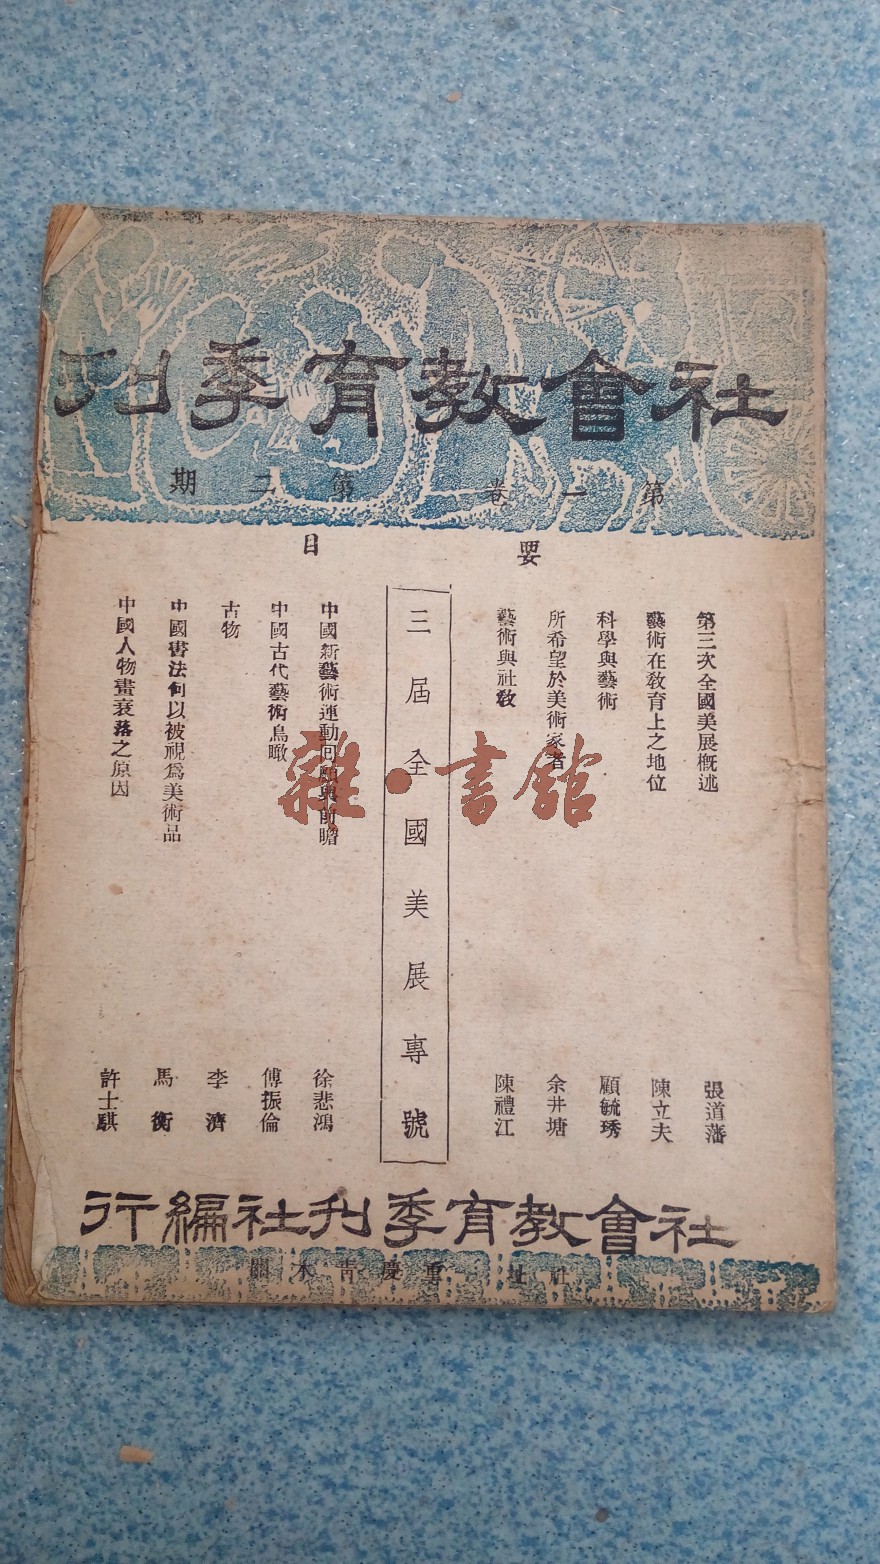 社會教育季刊
第一卷 第二期
要目
第三次全國美展概述 張道藩
藝術在教育上之地位 陳立夫
科學與藝術 顧毓琇
所希望於美術家者 余井塘
藝術與社教 陳禮江
三屆全國美展專號
中國新藝術運動回顧與前瞻 徐悲鴻
中國古代藝術鳥瞰 傅振倫
古物 李濟
中國書法何以被視爲美術品 馬衡
中國人物畫衰落之原因 許士騏
社會教育季刊社編行
社址 重慶青木關
雜·書館